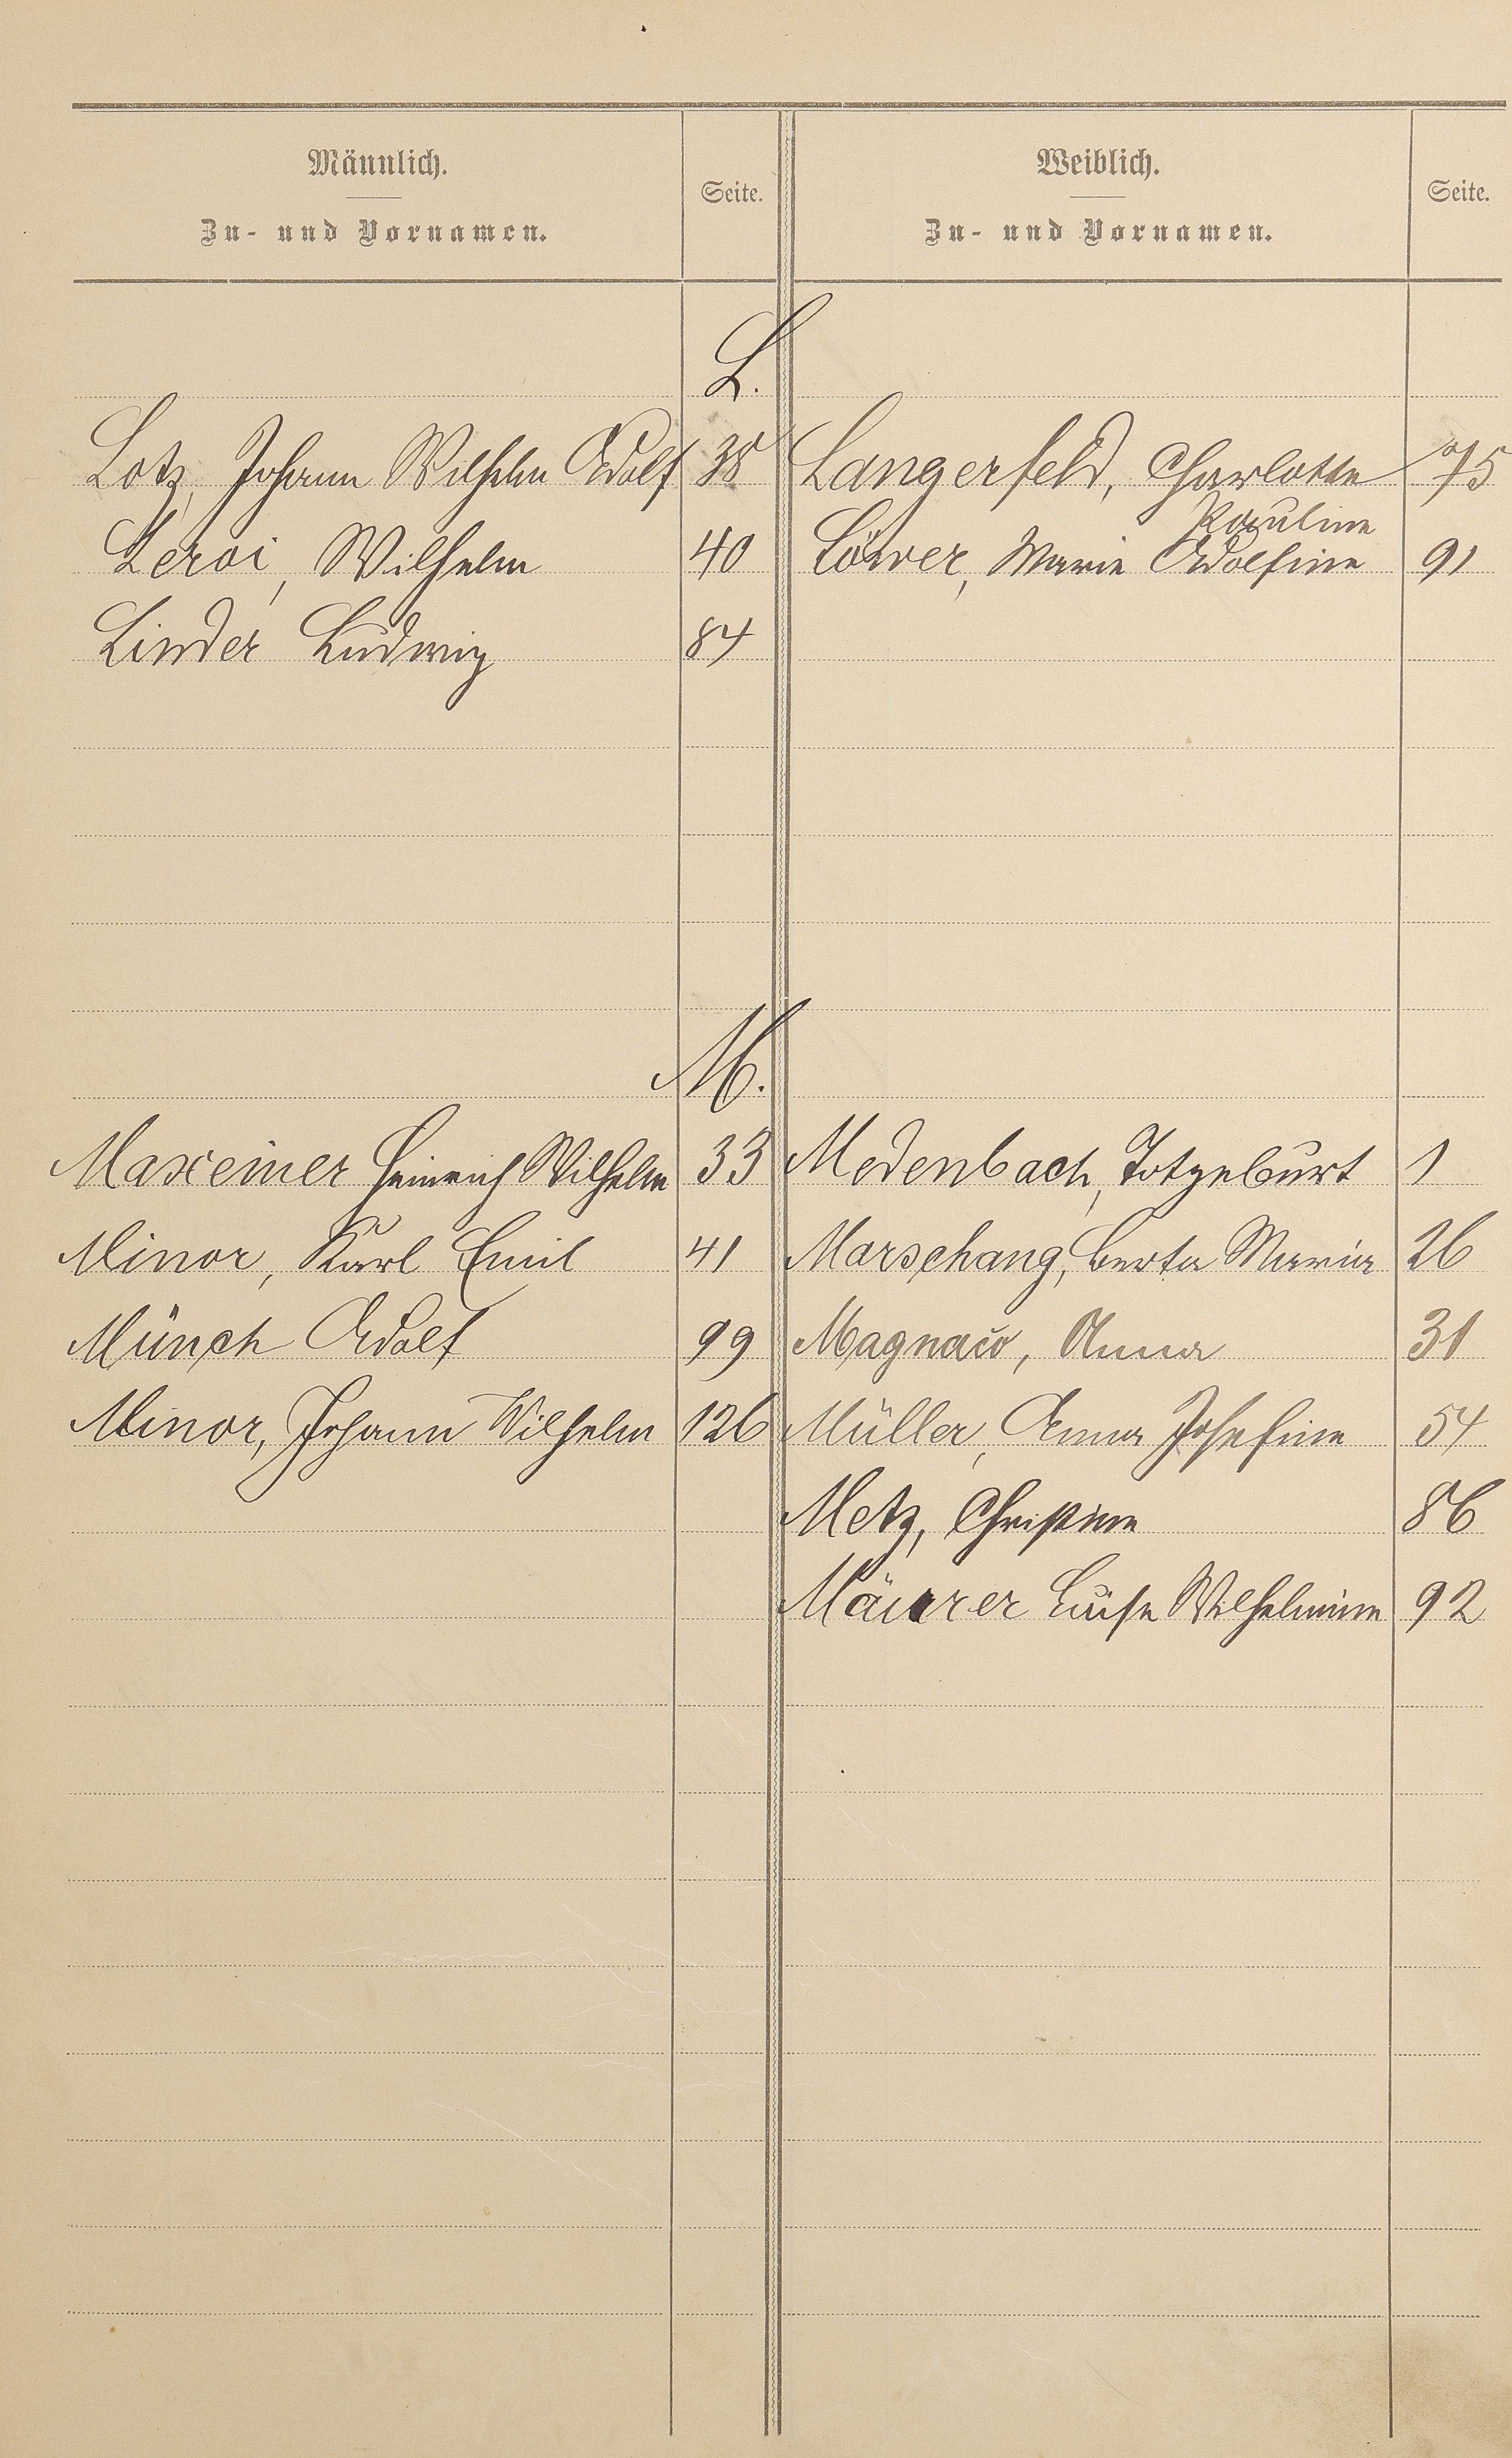 Männlich.
Zu- und Vornamen.
Seite.
Weiblich.
Zu- und Vornamen.
Seite.
L.
Lotz, Johann Wilhelm Adolf 38 Langerfeld, Charlotte 75
Karoline
Leroi, Wilhelm 40 Löwer, Marie Adolfine 91
Linder Ludwig 84
M.
Maxeiner Heinrich Wilhelm 33 Medenbach, Totgeburt 1
Minor, Karl Emil 41 Marschang, Berta Maria 26
Münch Adolf 99 Anna 31
Minor, Johann Wilhelm 126 Müller, Anna Josefine 54
Metz, Christine 86
Mäurer Luise Wilhelmine 92